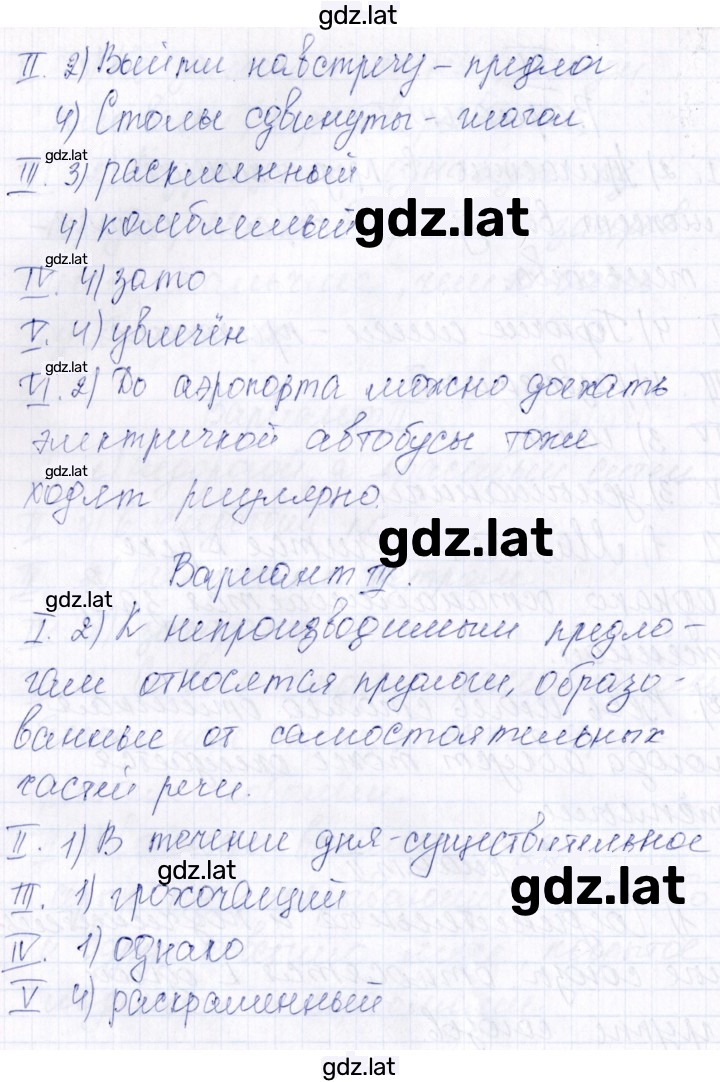 gdz.lat
II. 2) Выйти навстречу - предлог
4) Столы сдвинуты - глагол.
gdz.lat
III. 3) раскленный
4) колеблемый
gdz.lat
gdz.lat
IV. 4) зато
V. 4) увлечён
gdz.lat
VI. 2) До аэропорта можно доехать
электричкой автобусы тоже
gdz.lat
ходят регулярно.
gdz.lat
Вариант III.
gdz.lat
I. 2) К непроизводимым предло-
гам относятся предлоги, образо-
ванные от самостоятельных
частей речи.
II. 1) В течение дня - существительное
gdz.lat
III. 1) грохочащий
gdz.lat
IV. 1) однако
V 4) раскрашенный
gdz.lat